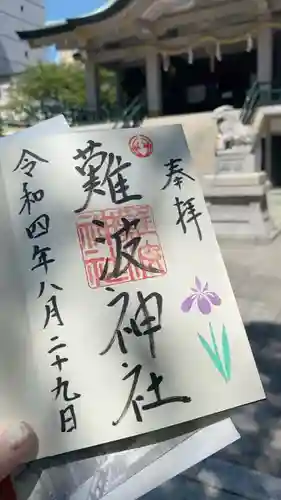 奉拝
難波神社
令和四年八月二十九日